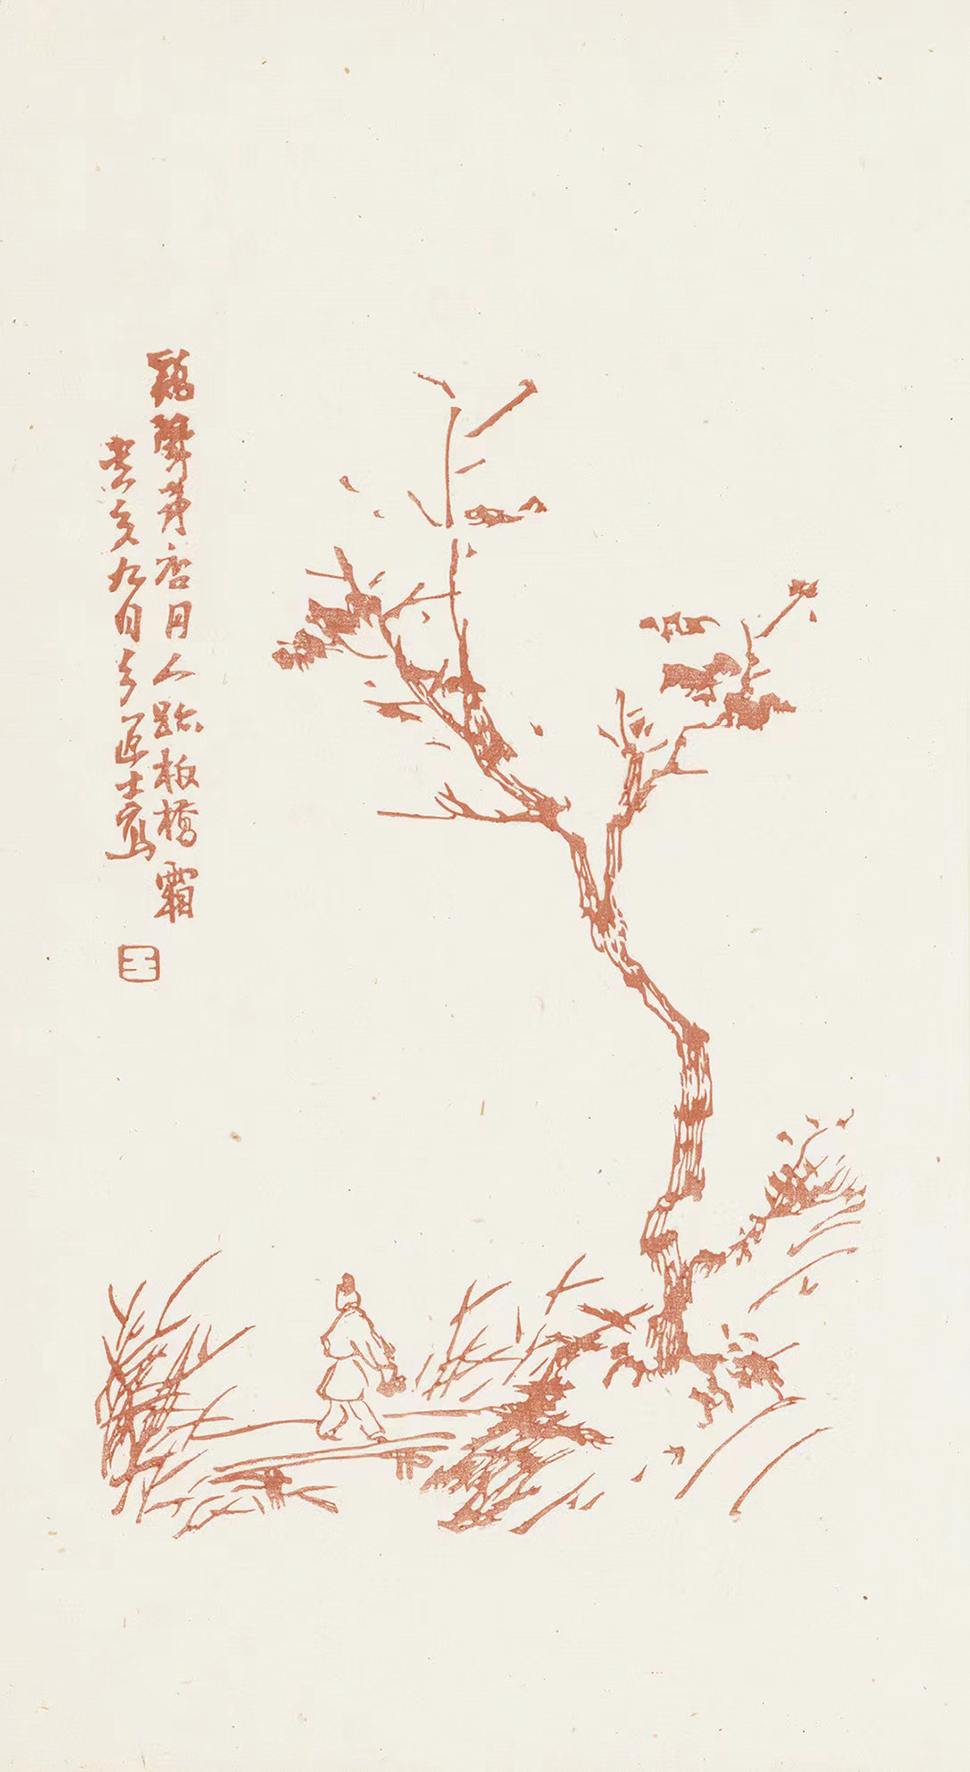 鷄聲茅店月人跡板橋霜
癸亥九月道士寫
王